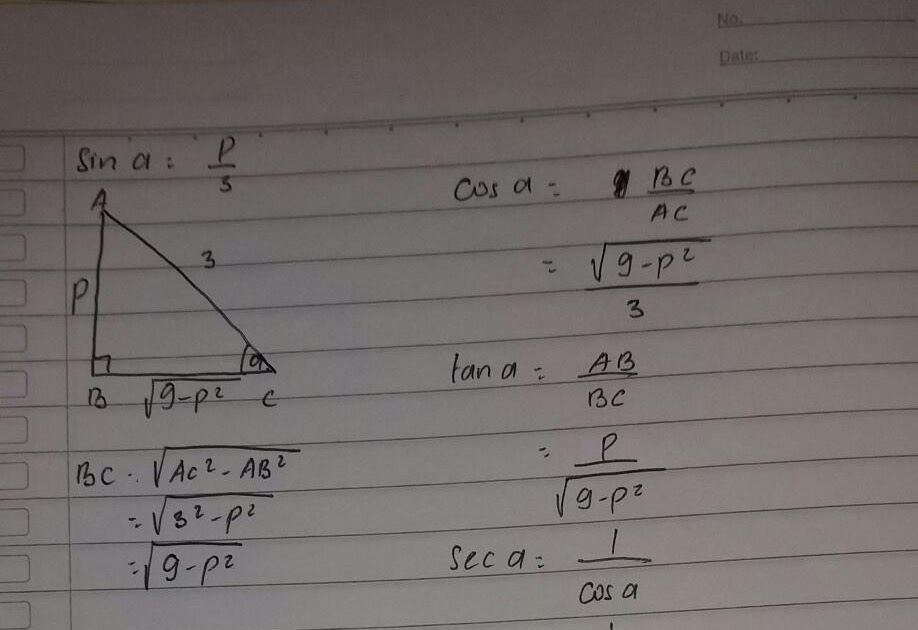 No.
Date:
sin a = P/3
A
3
P
a
B √9-p² C
BC = √AC² - AB²
= √3² - p²
= √9-p²
cos a = BC/AC
= √9-p²/3
tan a = AB/BC
= P/√9-p²
sec a = 1/cos a